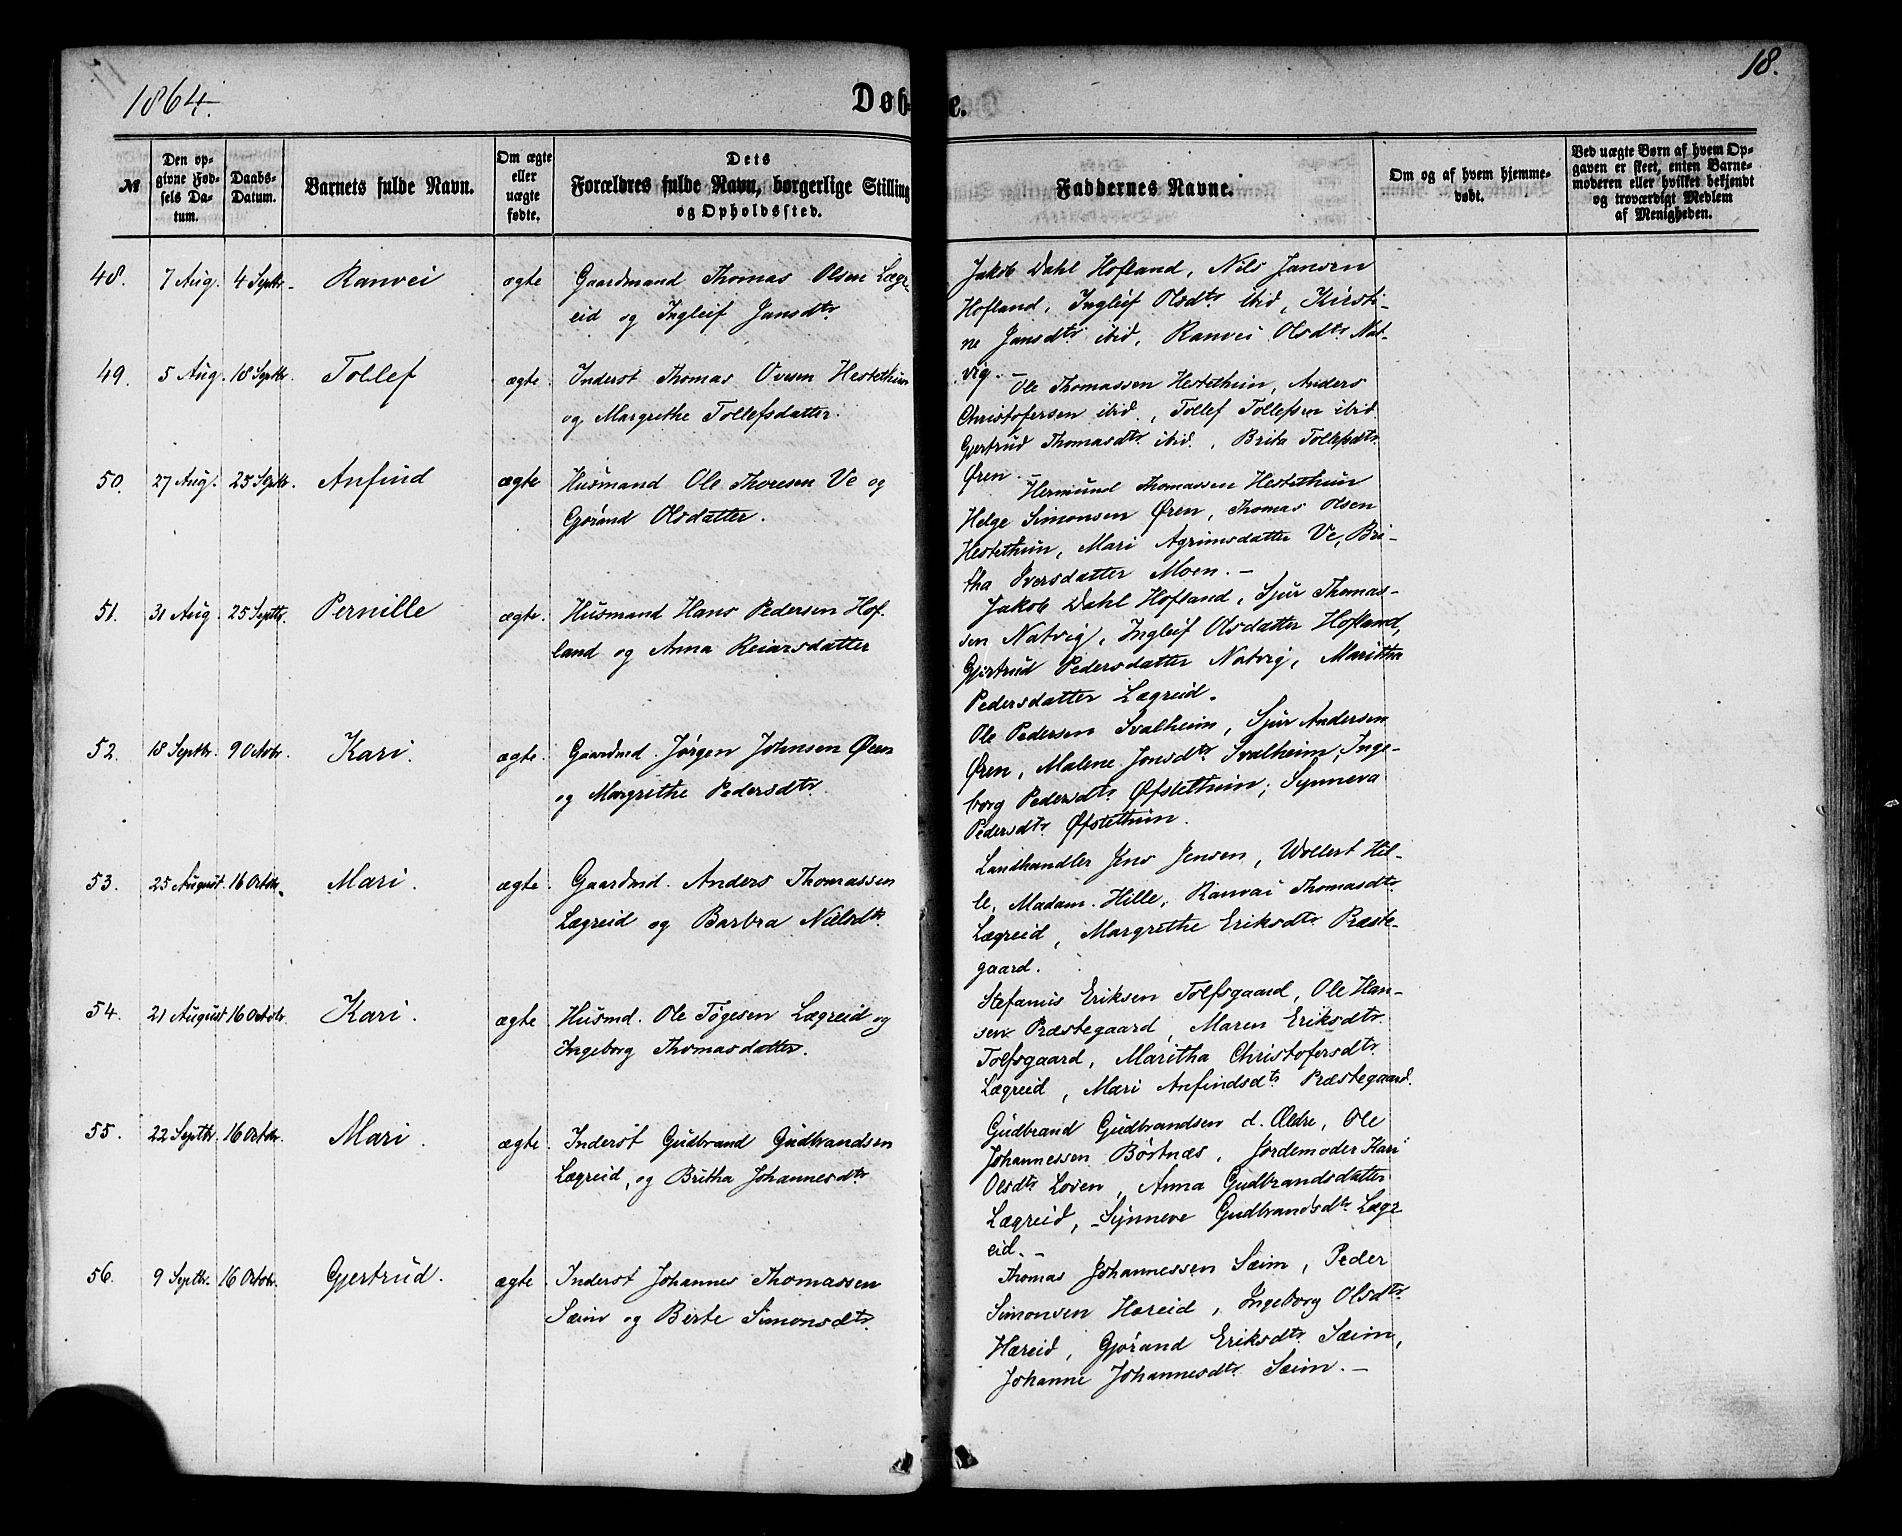 1864.
Døbte.
18.
№
Den opgivne Fødsels Datum.
Daabs-Datum.
Barnets fulde Navn.
Om ægte eller uægte fødte.
Dets Forældres fulde Navn, borgerlige Stilling og Opholdssted.
Faddernes Navne.
Om og af hvem hjemmedøbt.
Ved uægte Børn af hvem Opgaven er skeet, enten Barnemoderen eller hvilket bekjendt og troværdigt Medlem af Menigheden.
48. 7 Aug. 4 Septbr. Ranvei ægte Gaardmand Thomas Olsen Lægr-
eid og Ingleif Jansdtr
Jakob Dahl Hofland, Nils Jansen
Hofland, Ingleif Olsdtr ibid, Kirsti-
ne Jansdtr ibid, Ranvei Olsdtr Nat-
vig.
49. 5 Aug. 18 Septbr. Tollef ægte. Inderst Thomas Oversen Hestethun
og Margrethe Tollefsdatter.
Ole Thomassen Hestethun, Anders
Christofersen ibid., Tollef Tollefsen ibid.
Gjertrud Thomasdtr ibid., Brita Tollefsdtr
Øren.
50. 27 Aug. 25 Septbr. Anfind ægte Husmand Ole Thoresen Ve og
Gjørand Olsdatter.
Hermund Thomassen Hestethun
Helge Simonsen Øren, Thomas Olsen
Hestethun, Mari Agrimsdatter Ve, Bri-
tha Iversdatter Moen. —
51. 31 Aug. 25 Septbr. Pernille ægte. Husmand Hans Pedersen Hof
land og Anna Reiarsdatter
Jakob Dahl Hofland, Sjur Thomas-
sen Natvig, Ingleif Olsdatter Hofland,
Gjertrud Pedersdatter Natvig, Maritha
Pedersdatter Lægreid.
52. 18 Septbr. 9 Octobr. Kari. ægte. Gaardmd. Jørgen Johnsen Øren
og Margrethe Pedersdtr.
Ole Pedersen Svalheim, Sjur Andersen
Øren, Malene Jonsdtr Svalheim, Inge-
borg Pedersdtr Øfstethun; Synneva
Pedersdtr. Øfstethun.
53. 25 August. 16 Octobr. Mari. ægte. Gaardmd. Anders Thomassen
Lægreid og Barbra Nielsdtr.
Landhandler Jens Jensen, Wollert Hil-
le, Madam. Hille, Ranvai Thomasdtr
Lægreid, Margrethe Eriksdtr. Præste-
gaard.
54. 21 August 16 Octobr. Kari. ægte. Husmd. Ole Tøgesen Lægreid og
Ingeborg Thomasdatter.
Stefanus Eriksen Tolfsgaard, Ole Han-
sen Præstegaard, Maren Eriksdtr.
Tolfsgaard, Maritha Christofersdtr
Lægreid, Mari Anfindsdtr Præstegaard.
55. 22 Septbr. 16 Octobr. Mari. ægte. Inderst Gudbrand Gudbrandsen
Lægreid, og Britha Johannesdtr
Gudbrand Gudbrandsen d. Ældre, Ole
Johannessen Børtnæs, Jordemoder Kari
Olsdtr Loven, Anna Gudbrandsdatter
Lægreid, Synneve Gudbrandsdtr Lægr
eid. —
56. 9 Septbr. 16 Octobr. Gjertrud. ægte. Inderst Johannes Thomassen
Sæim og Berte Simonsdtr.
Thomas Johannessen Sæim, Peder
Simonsen Hæreid, Ingeborg Olsdtr
Hæreid, Gjørand Eriksdtr Sæim,
Johanne Johannesdtr. Sæim. —